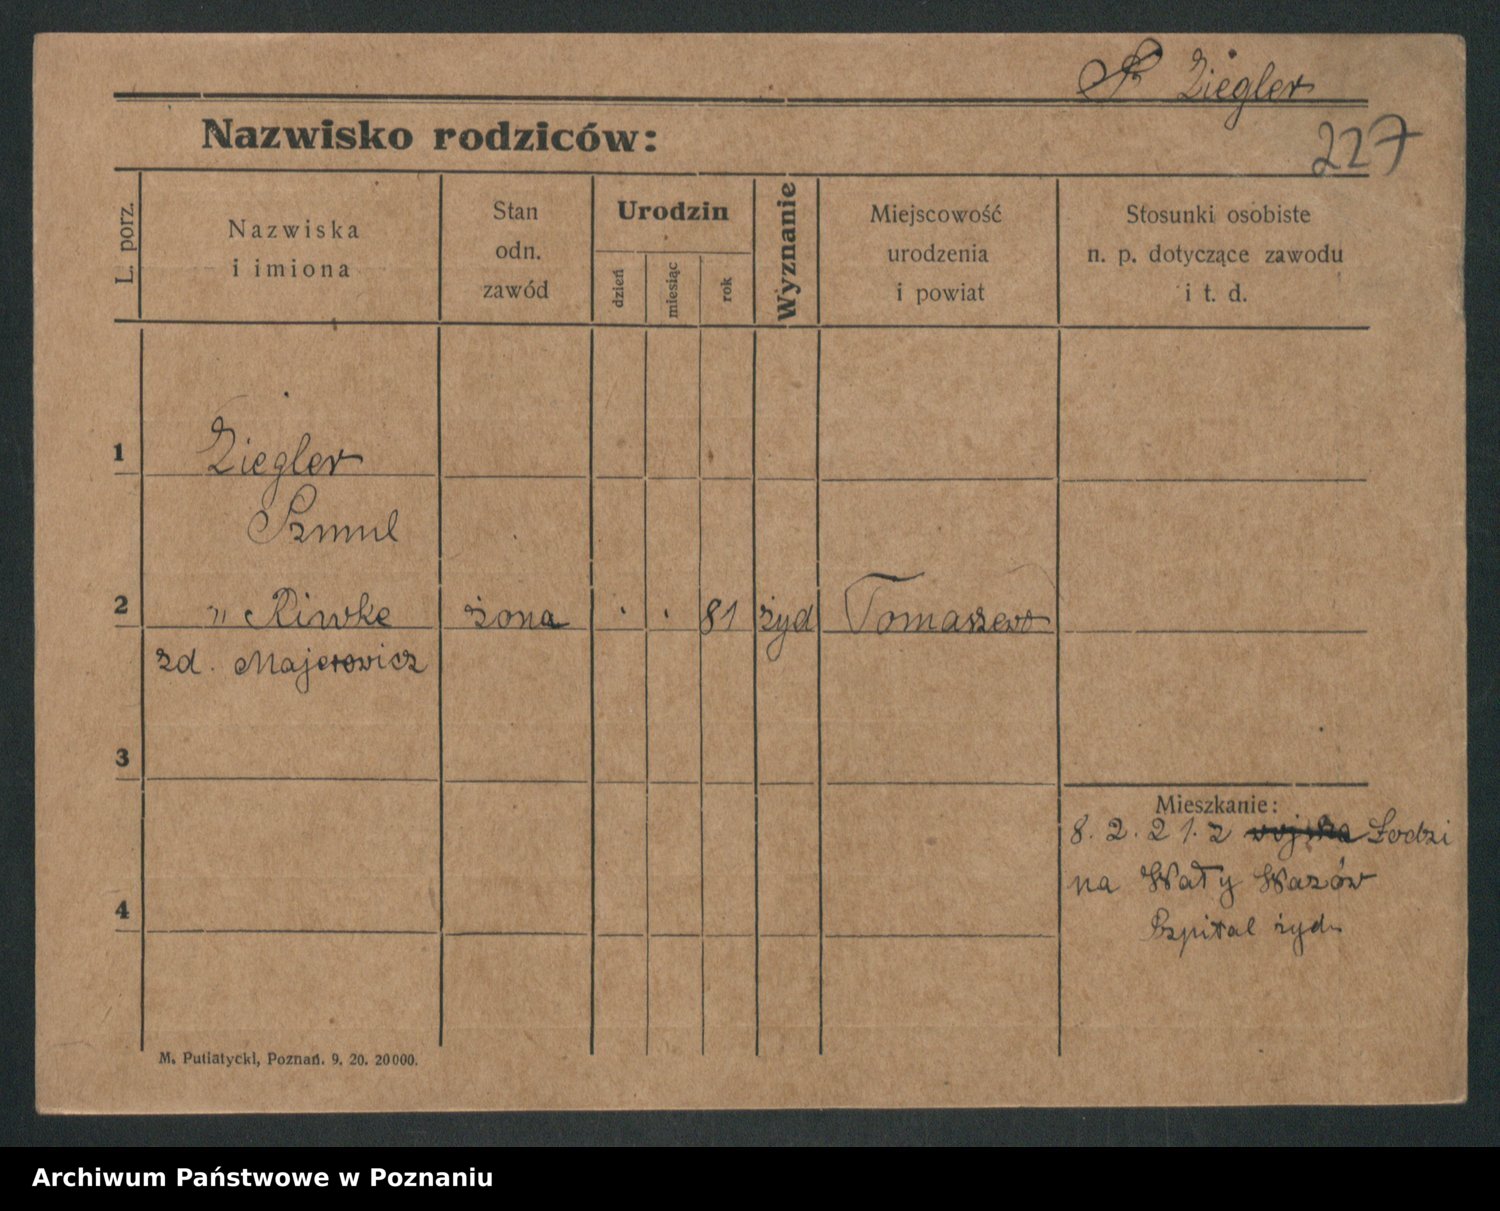 Ziegler
Nazwisko rodziców:
227
L. porz.
Nazwiska
i imiona
Stan
odn.
zawód
Urodzin
dzień
miesiąc
rok
Wyznanie
Miejscowość
urodzenia
i powiat
Stosunki osobiste
n. p. dotyczące zawodu
i t. d.
1
Ziegler
Szmul
2 " Riwke żona . . 81 żyd Tomaszew
zd. Majerowicz
3
Mieszkanie:
8. 2. 21. z wojska Łodzi
na Wały Wazów
Szpital żyd.
4
M. Putiatycki, Poznań. 9. 20. 20000.
Archiwum Państwowe w Poznaniu